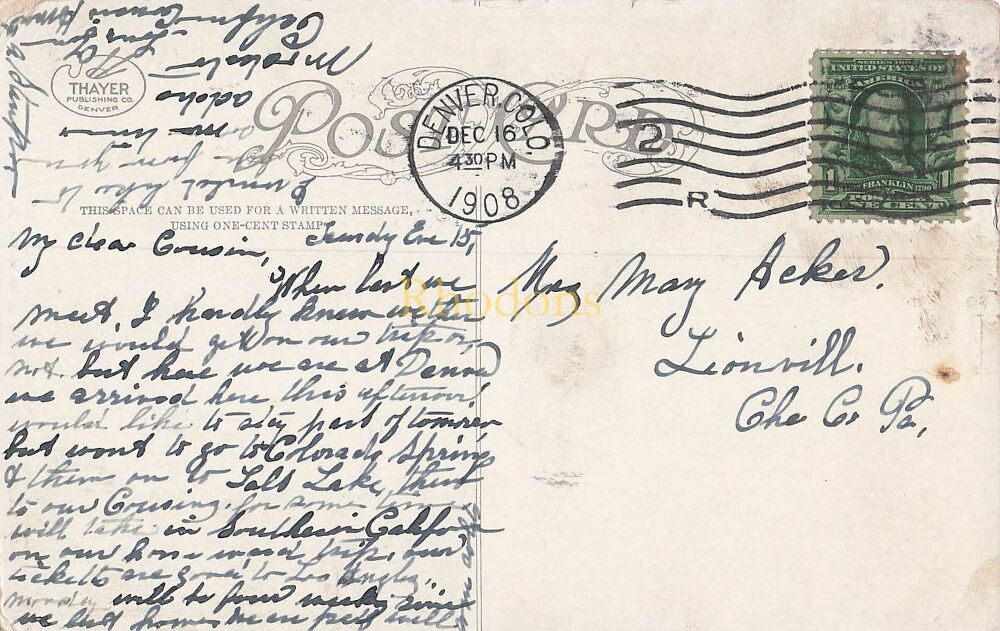 THAYER
PUBLISHING CO.
DENVER
POST CARD
DENVER, COLO.
DEC 16
4 30 PM
1908
2
R
SERIES 1902
UNITED STATES OF
AMERICA
1 1
FRANKLIN 1790
POSTAGE
ONE CENT
THIS SPACE CAN BE USED FOR A WRITTEN MESSAGE,
USING ONE-CENT STAMP
My dear Cousin, Eve 15,
When last we
meet, I hardly knew wether
we would get on our trip or
not. but here we are at Denver
we arrived here this afternoon
would like to stay part of tomorow
but want to go to Colorado Springs
& then on to Salt Lake, then
to our Cousins for some time
will take in Southern Califor
on our home ward trip, our
tickets are good to Los Angles,
Monday will be four weeks since
we left home, we are well
Mrs Mary Acker.
Lionvill.
Che Co Pa,
Rhodons
California